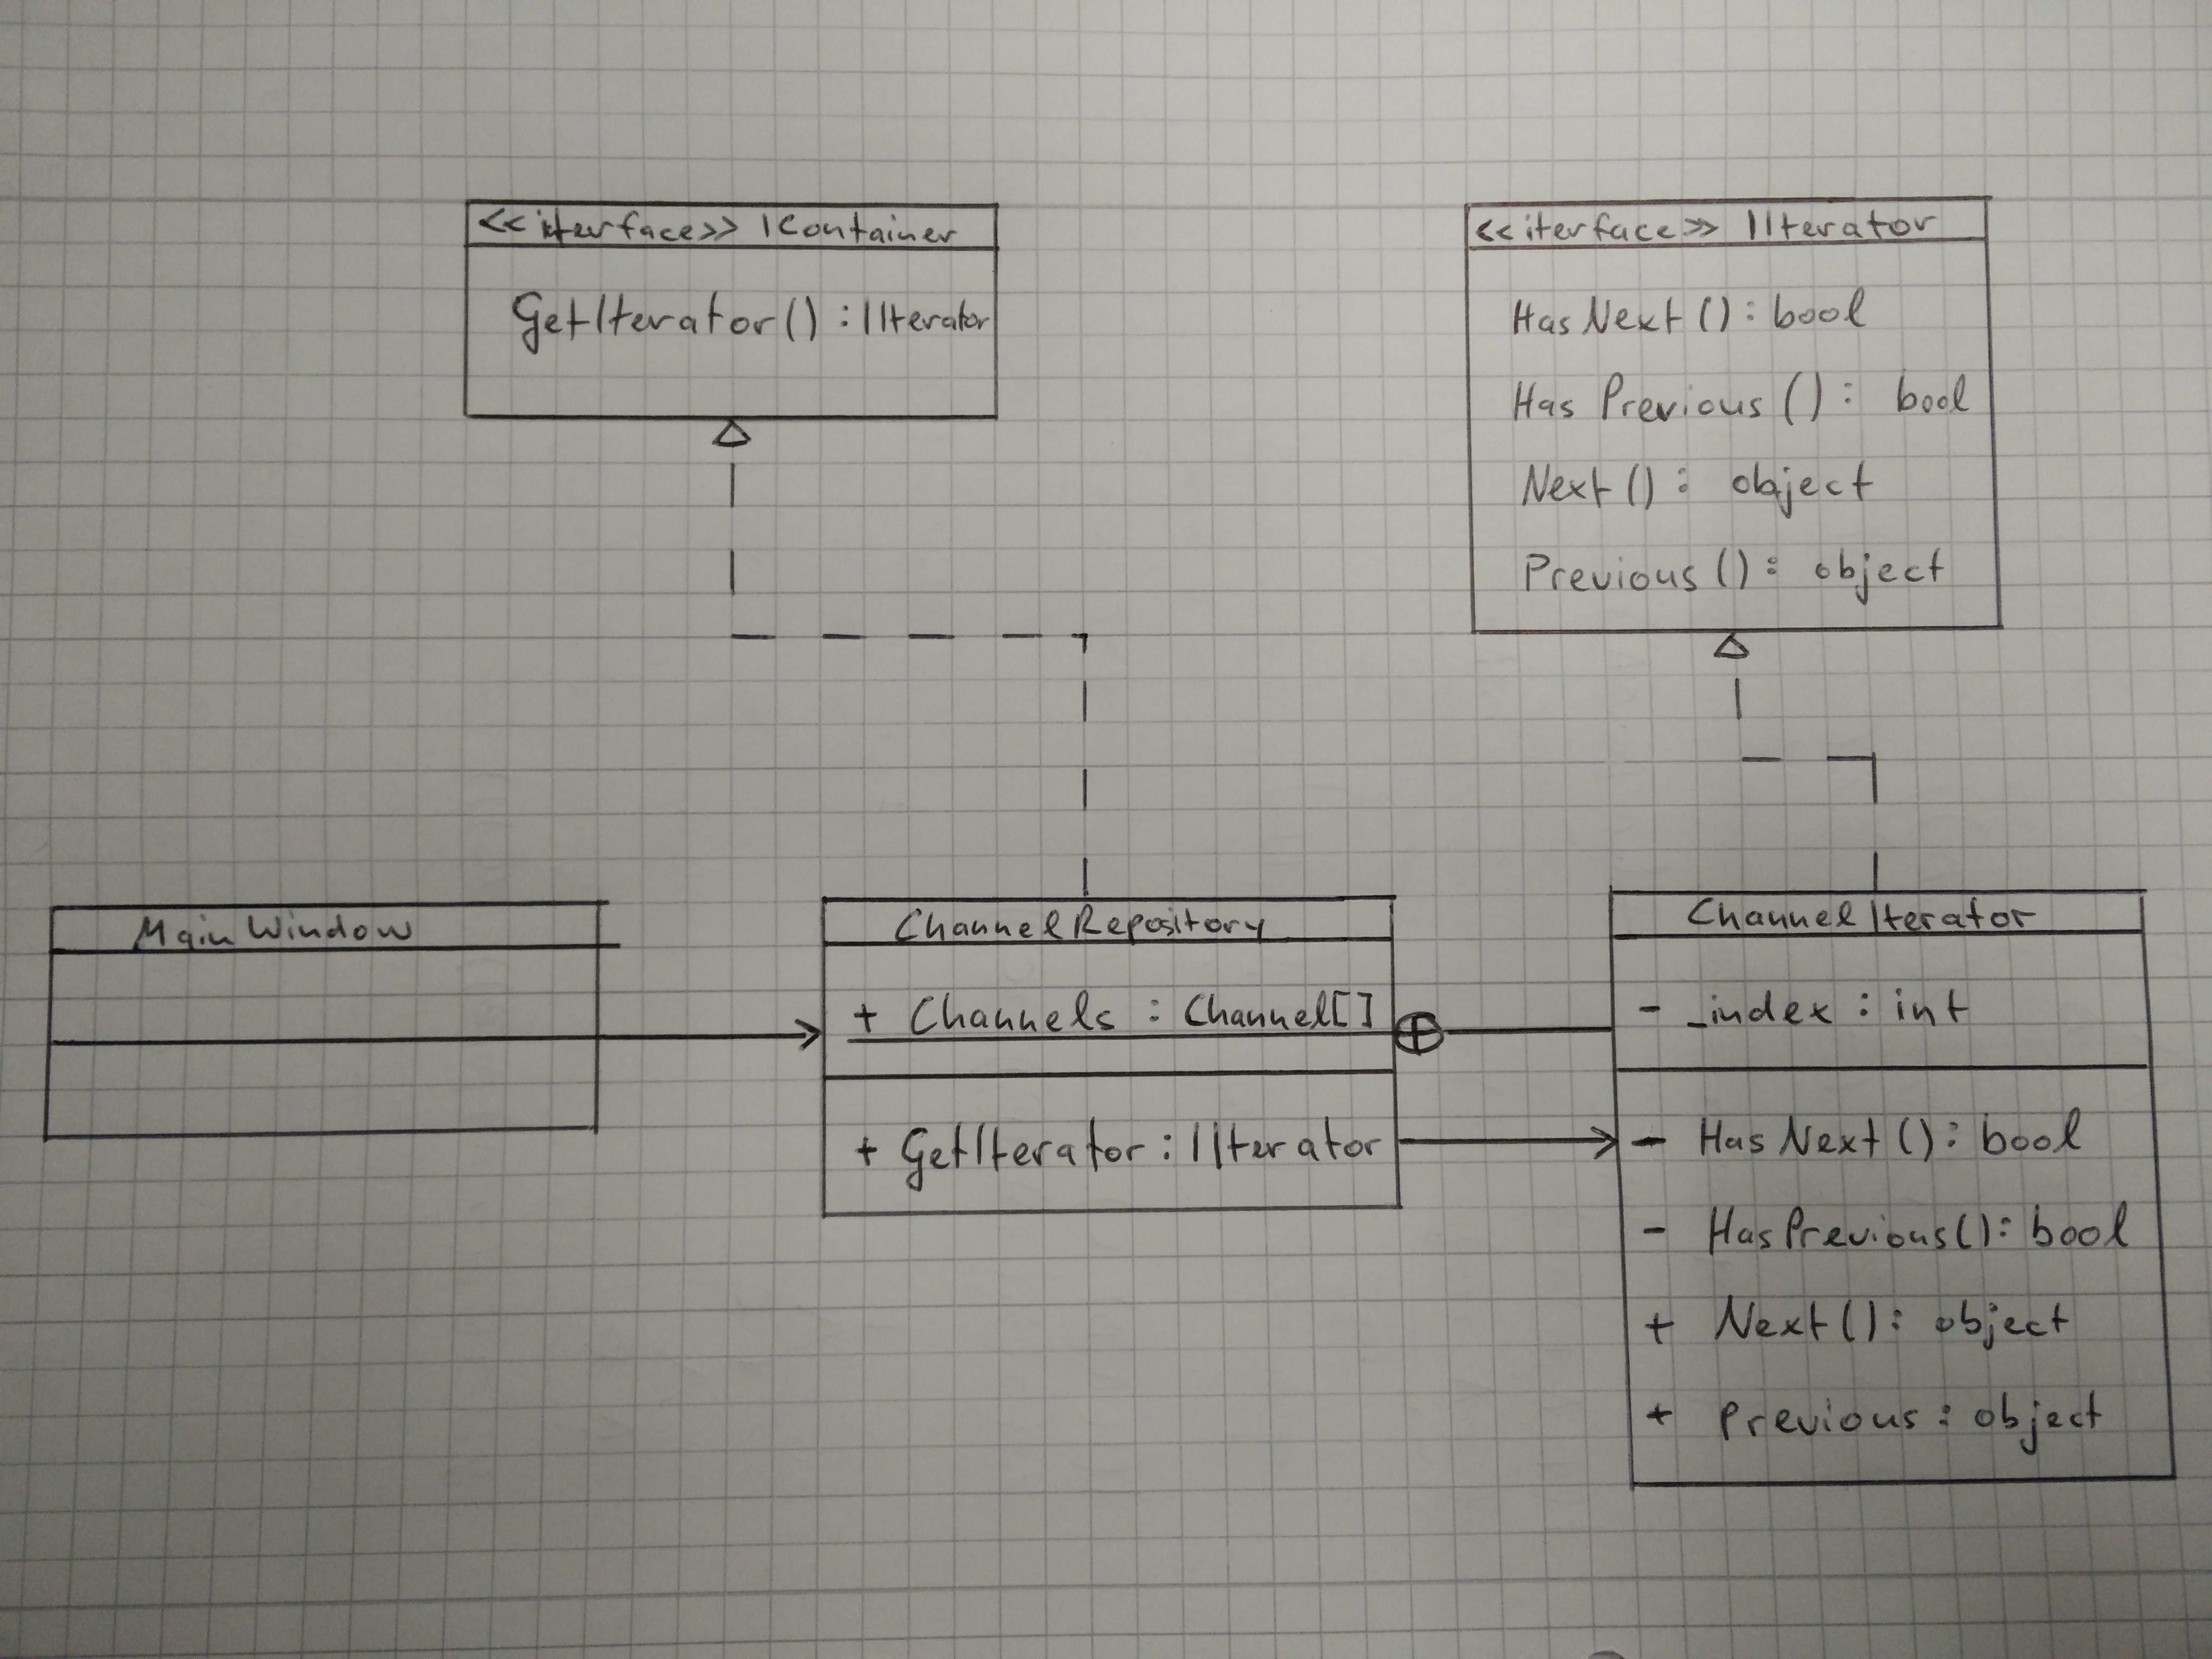 <<iterface>> IContainer
GetIterator() : IIterator
<<iterface>> IIterator
HasNext() : bool
HasPrevious() : bool
Next() : object
Previous() : object
MainWindow
ChannelRepository
+ Channels : Channel[]
+ GetIterator : IIterator
ChannelIterator
- _index : int
- HasNext() : bool
- HasPrevious() : bool
+ Next() : object
+ Previous : object